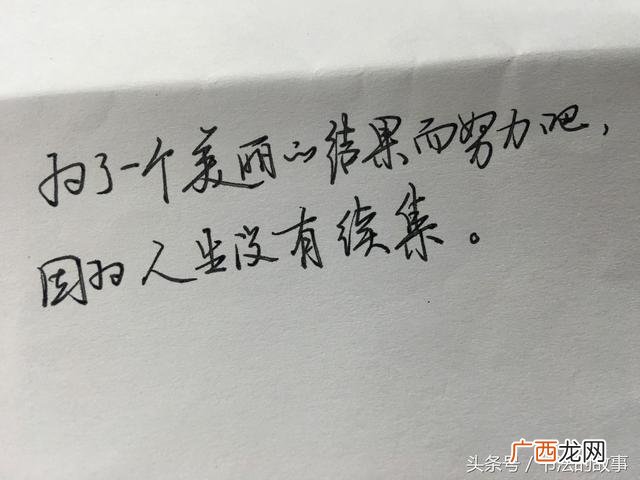 为了一个美丽的结果而努力吧，
因为人生没有续集。
广西龙网
头条号／书法的故事